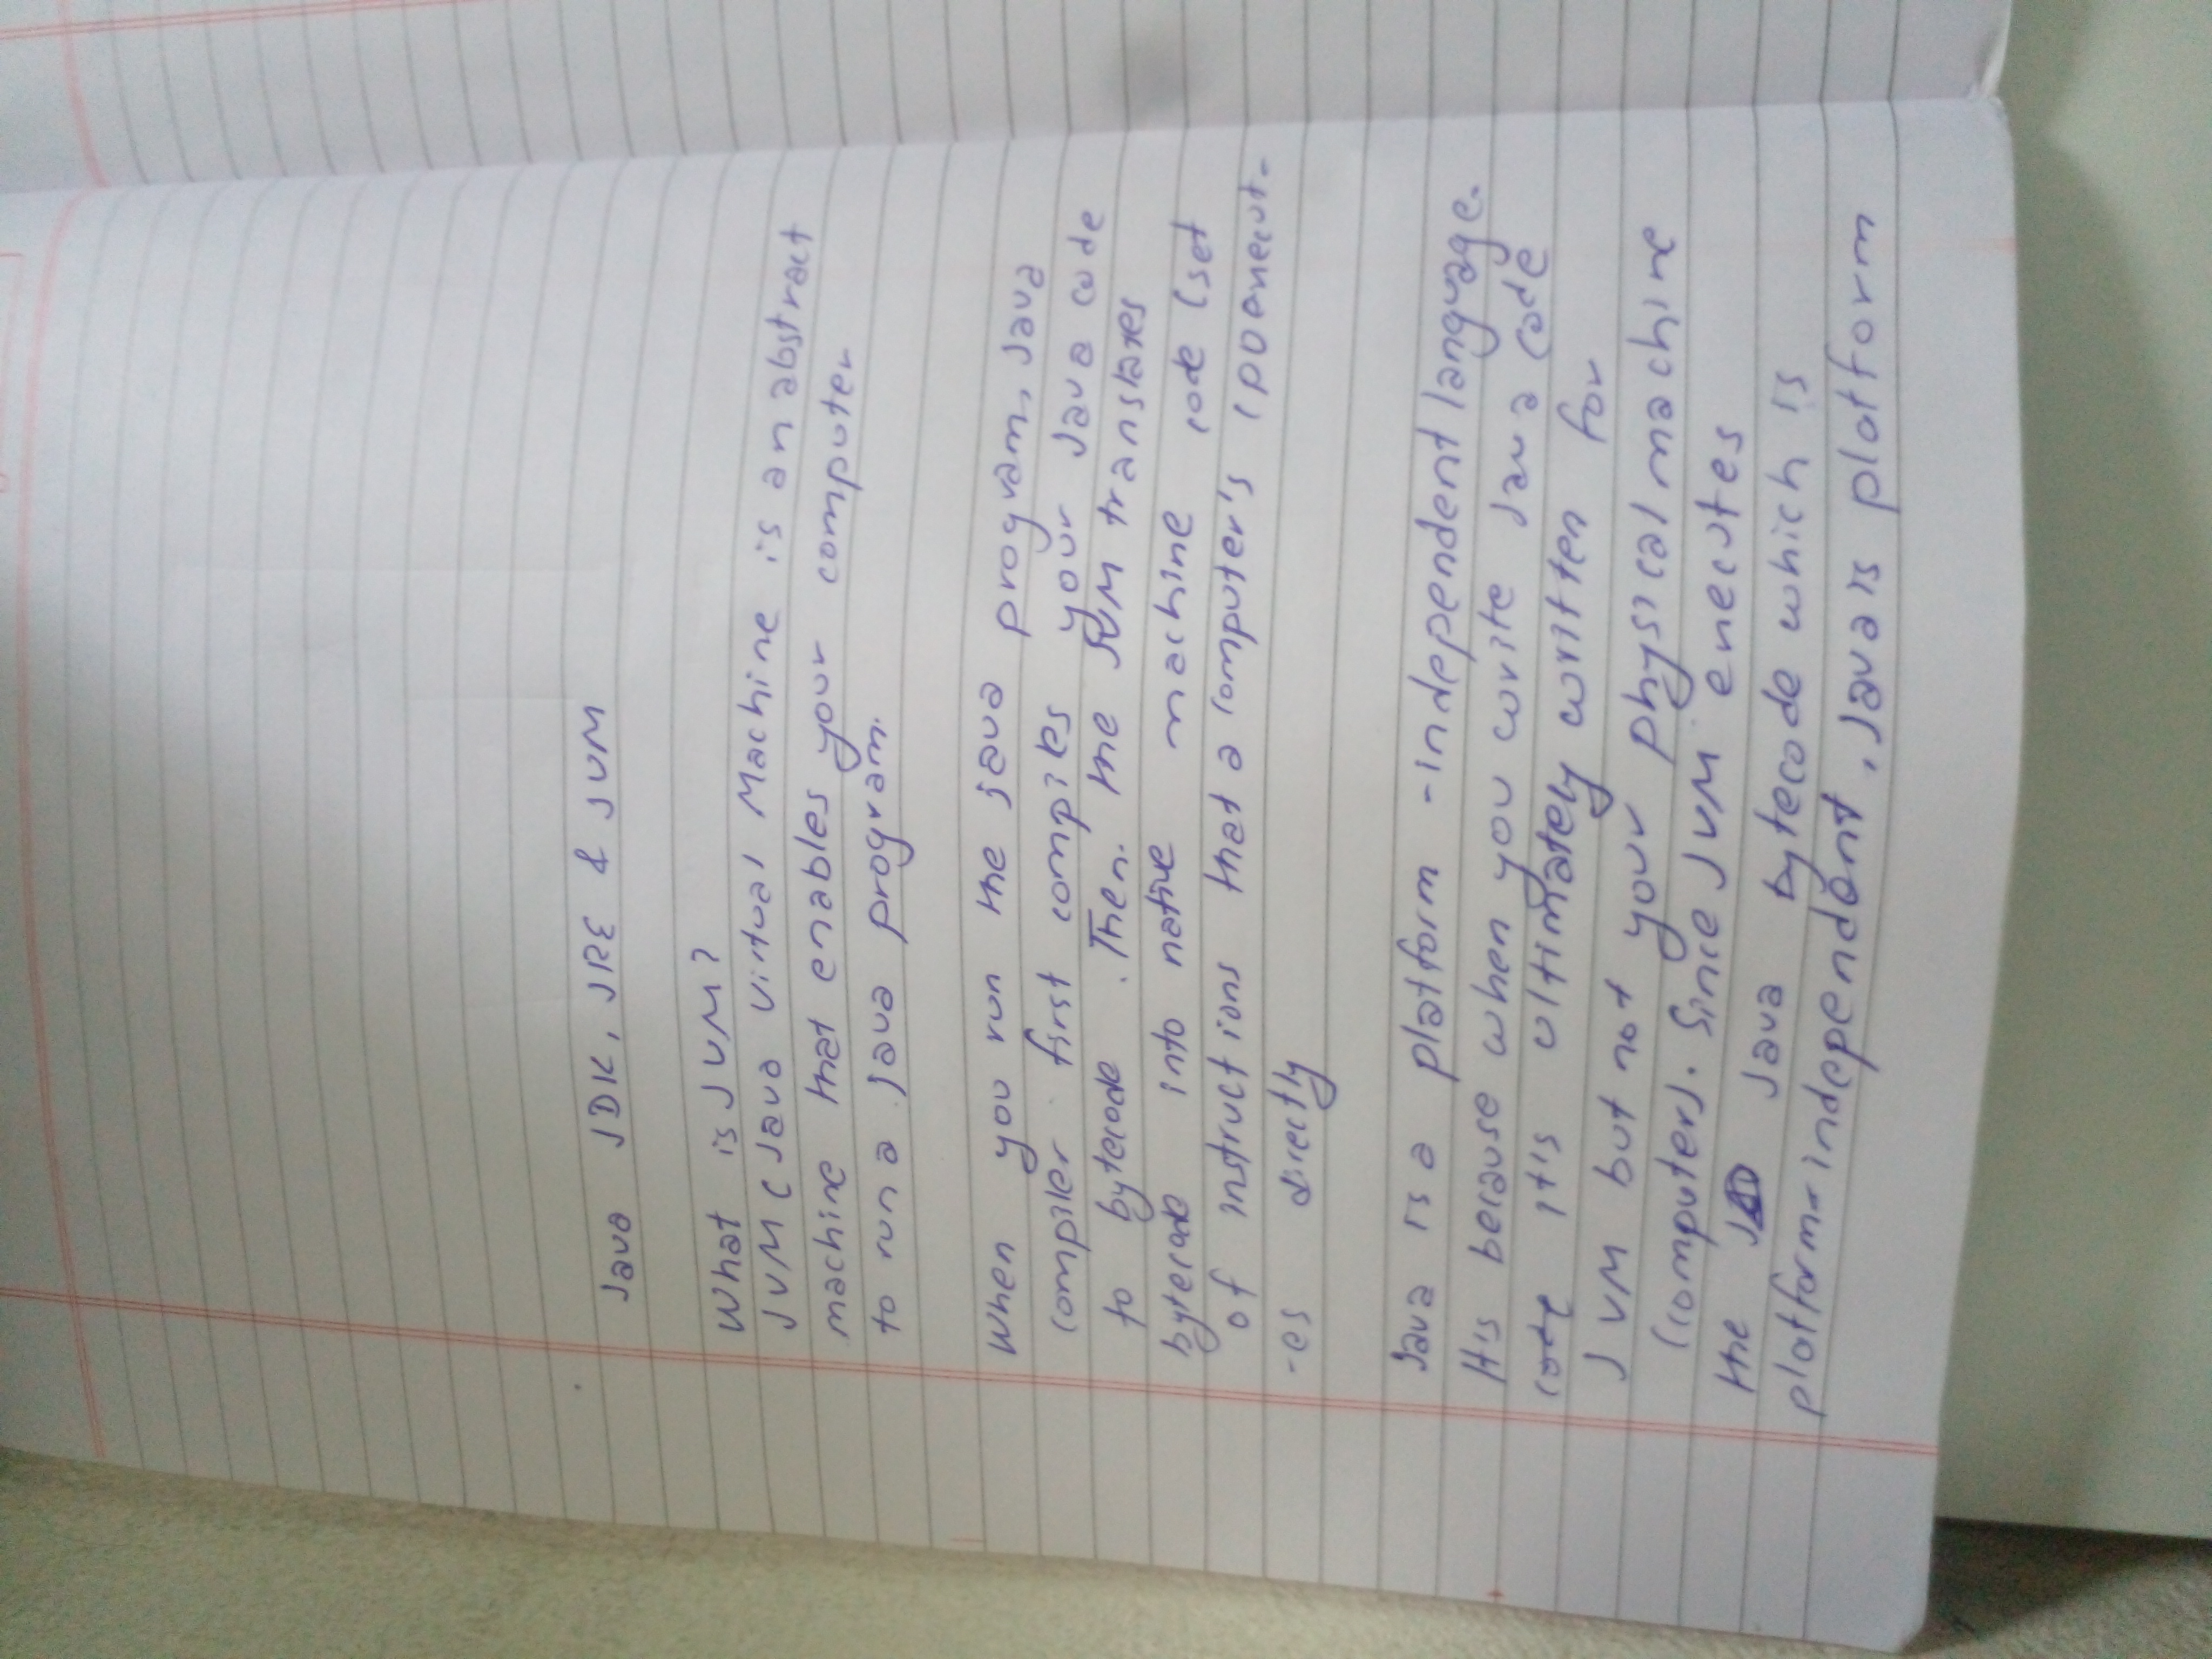 Java JDK, JRE & JVM
What is JVM?
JVM (Java Virtual Machine is an abstract
machine that enables your computer
to run a java program.
When you run the java program, Java
compiler first compiles your Java code
to bytecode . Then. the JVM translates
bytecode into native machine code (set
of instructions that a computer's CPU execut-
-es directly
Java is a platform -independent language.
It's because when you write Java code
code it's ultimately written for
JVM but not your physical machine
(computer). Since JVM executes
the Java bytecode which is
platform-independent, Java is platform